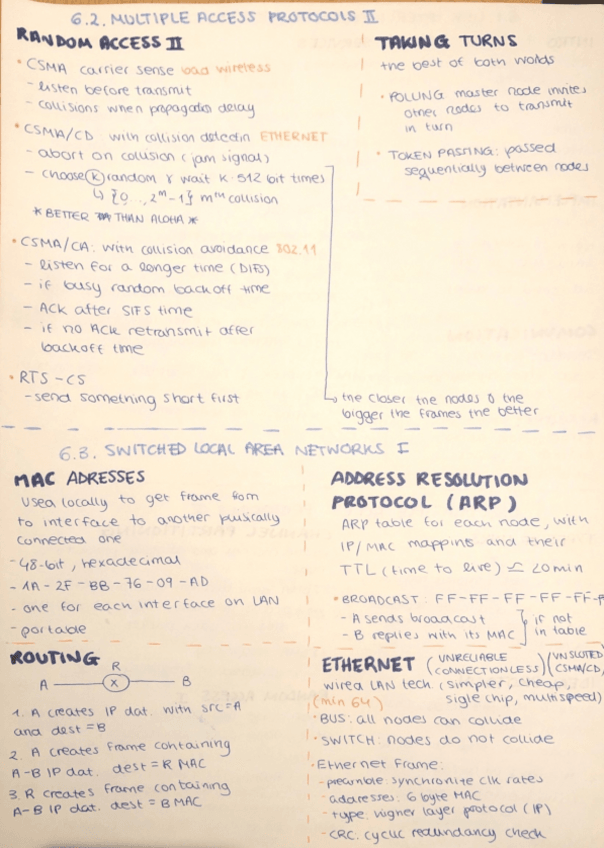 6.2. MULTIPLE ACCESS PROTOCOLS II
RANDOM ACCESS II
• CSMA carrier sense bad wireless
- listen before transmit
- collisions when propagatio delay
• CSMA/CD with collision detectin ETHERNET
- abort on collision (jam signal)
- choose k random & wait K·512 bit times
↳ {0..., 2^m-1} m^th collision
* BETTER THAN ALOHA *
• CSMA/CA: with collision avoidance 802.11
- listen for a longer time (DIFS)
- if busy random back off time
- ACK after SIFS time
- if no ACK retransmit after
backoff time
• RTS - CS
- send something short first
TAKING TURNS
the best of both worlds
• POLLING master node invites
other nodes to transmit
in turn
• TOKEN PASSING: passed
sequentially between nodes
the closer the nodes & the
bigger the frames the better
6.3. SWITCHED LOCAL AREA NETWORKS I
MAC ADRESSES
Used locally to get frame from
to interface to another pusically
connected one
- 48-bit, hexadecimal
- 1A - 2F - BB - 76 - 09 - AD
- one for each interface on LAN
- portable
ADDRESS RESOLUTION
PROTOCOL (ARP)
ARP table for each node, with
IP/MAC mappints and their
TTL (time to live) ≃ 20min
• BROADCAST: FF-FF-FF-FF-FF-F
- A sends broadcast
- B replies with its MAC
if not
in table
ROUTING
R
A X B
1. A creates IP dat. with src=A
and dest=B
2. A creates frame containing
A-B IP dat. dest=R MAC
3 R creates frame containing
A-B IP dat. dest=B MAC
ETHERNET (UNRELIABLE CONNECTIONLESS) (UNSLOTED CSMA/CD)
wired LAN tech. (simpler, cheap,
(min 64) sigle chip, multispeed)
• BUS: all nodes can collide
• SWITCH: nodes do not collide
• Ethernet frame:
- preamble: synchronite clk rates
- addresses: 6 byte MAC
- type: higher layer protocol (IP)
- CRC: cyclic redundancy check